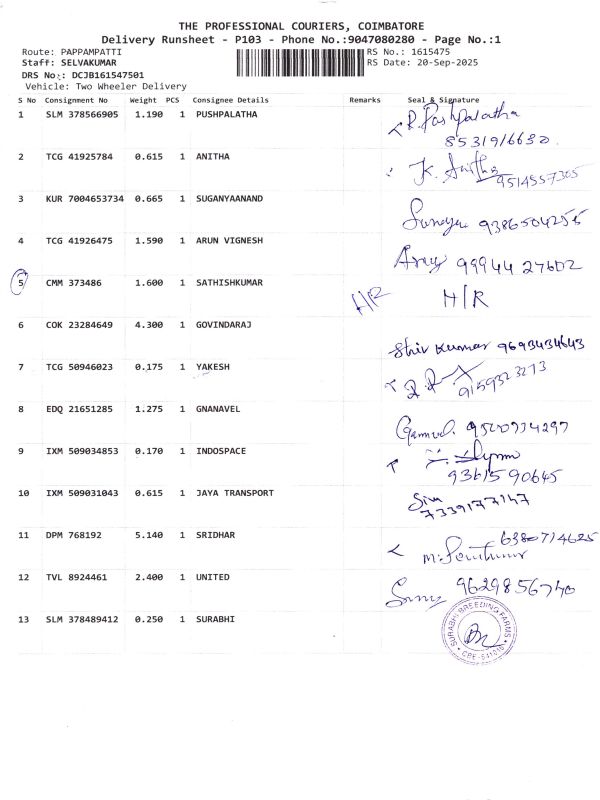 THE PROFESSIONAL COURIERS, COIMBATORE
Delivery Runsheet - P103 - Phone No.:9047080280 - Page No.:1
Route: PAPPAMPATTI RS No.: 1615475
Staff: SELVAKUMAR RS Date: 20-Sep-2025
DRS No.: DCJB161547501
Vehicle: Two Wheeler Delivery
S No Consignment No Weight PCS Consignee Details Remarks Seal & Signature
1 SLM 378566905 1.190 1 PUSHPALATHA R. Pushpalatha
8531916632
2 TCG 41925784 0.615 1 ANITHA K. Anitha
9514557305
3 KUR 7004653734 0.665 1 SUGANYAANAND 9386504256
4 TCG 41926475 1.590 1 ARUN VIGNESH Arun 99944 27602
5 CMM 373486 1.600 1 SATHISHKUMAR H/R H/R
6 COK 23284649 4.300 1 GOVINDARAJ Shiv Kumar 9693434643
7 TCG 50946023 0.175 1 YAKESH 9159323273
8 EDQ 21651285 1.275 1 GNANAVEL 9500774297
9 IXM 509034853 0.170 1 INDOSPACE
9361590645
10 IXM 509031043 0.615 1 JAYA TRANSPORT Siva
7339177147
11 DPM 768192 5.140 1 SRIDHAR 6380714625
12 TVL 8924461 2.400 1 UNITED 9629856740
13 SLM 378489412 0.250 1 SURABHI
SURABHI BREEDING FARMS